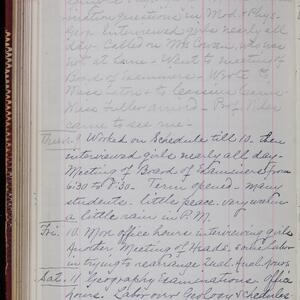 mation questions in Mod. & Phys.
Geog. Interviewed girls nearly all
day. Called on Mrs. who was
not at home - Went to meeting of
Board of Examiners - Wrote to
Miss
Miss Fuller arrived - Prof.
came to see me -
Thurs. 9 Worked on Schedule till 10. then
interviewed girls nearly all day -
Meeting of Board of Examiners from
6:30 to 8:30. Term opened - many
students - little peace. very warm
a little rain in P.M.
Fri. 10. Mor. office hours interviewing girls
Another Meeting of Heads.
in trying to rearrange
Sat. 11 Geography Examinations. Office
hours. Labor over Geology Schedules